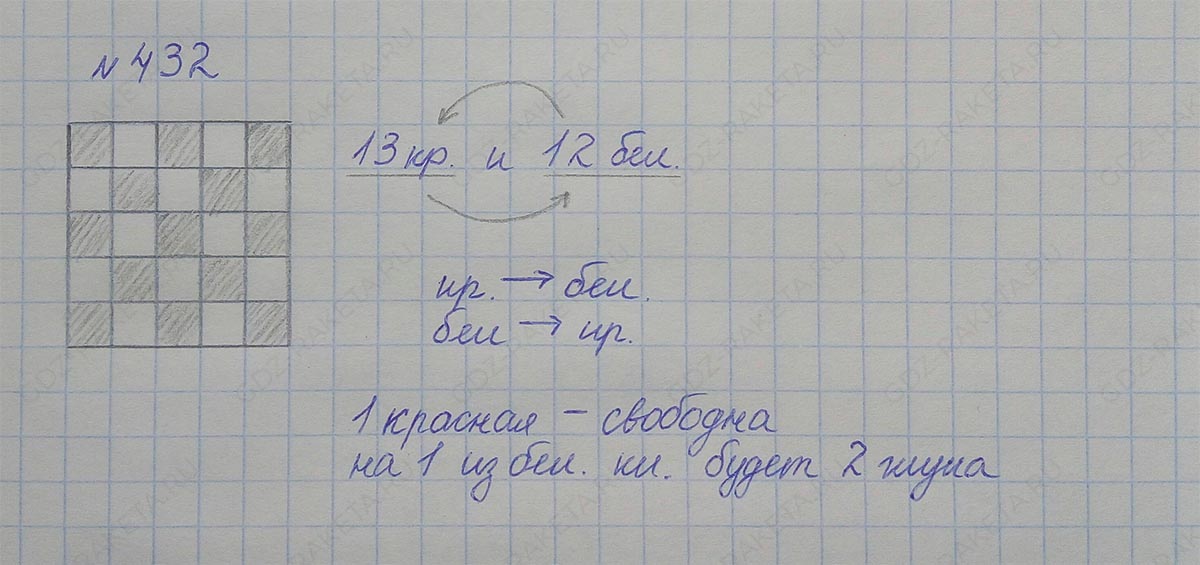 № 432
13 кр. и 12 бел.
кр. → бел.
бел → кр.
1 красная – свободна
на 1 из бел. кл. будет 2 жука
GDZ-RAKETA.RU